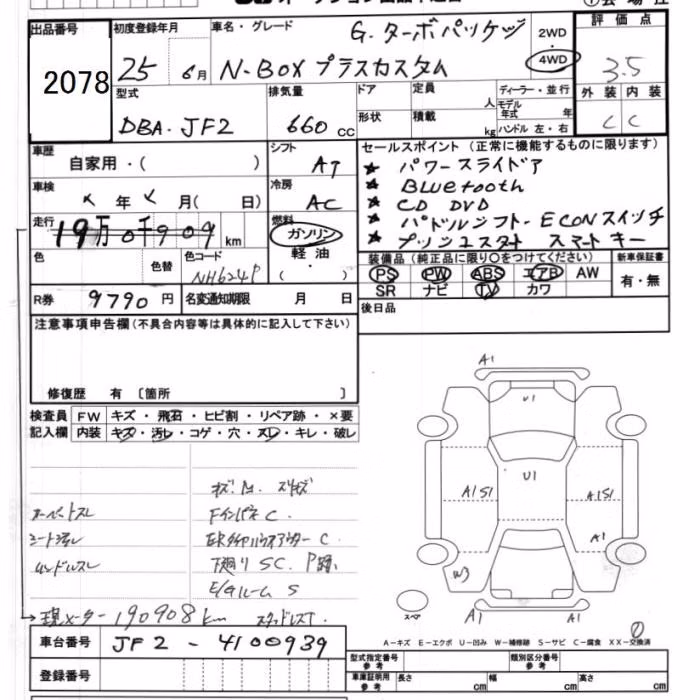 出品番号 2078
初度登録年月 25 6月
車名・グレード G.ターボパッケヅ
N-BOX プラスカスタム
2WD
4WD
評価点 3.5
型式 DBA.JF2
排気量 660 cc
ドア
形状
定員 人
積載 kg
ディーラー・並行
モデル年式 年
ハンドル 左・右
外装 内装
C C
車歴 自家用・( )
シフト AT
セールスポイント (正常に機能するものに限ります)
★ パワースライドア
★ Bluetooth
★ CD DVD
★ パドルシフト-ECONスイッチ
★ プッシュスタート スマートキー
車検 年 月( 日)
冷房 AC
走行 19万0千909 km
燃料 ガソリン
軽油・
( )
色
色替
色コード NH624P
R券 9790 円
名変通知期限 月 日
装備品 (純正品に限り○をつけてください)
PS PW ABS エアB AW
SR ナビ TV カワ
新車保証書
有・無
後日品
注意事項申告欄(不具合内容等は具体的に記入して下さい)
修復歴 有 〔箇所 〕
検査員 FW キズ・飛石・ヒビ割・リペア跡・×要
記入欄 内装 キズ・汚レ・コゲ・穴・スレ・キレ・破レ
Fインパネ C
下廻り SC.
E/gルーム S
現メーター190908km スタッドレスT.
A1
U1
U1
A1S1
A1S1
A1
W3
スペア
A1
A1
A-キズ E-エクボ U-凹み W-補修跡 S-サビ C-腐食 XX-交換済
車台番号 JF2-4100939
登録番号
型式指定番号 参考
類別区分番号 参考
車庫証明用 参考
長さ cm
幅 cm
高さ cm